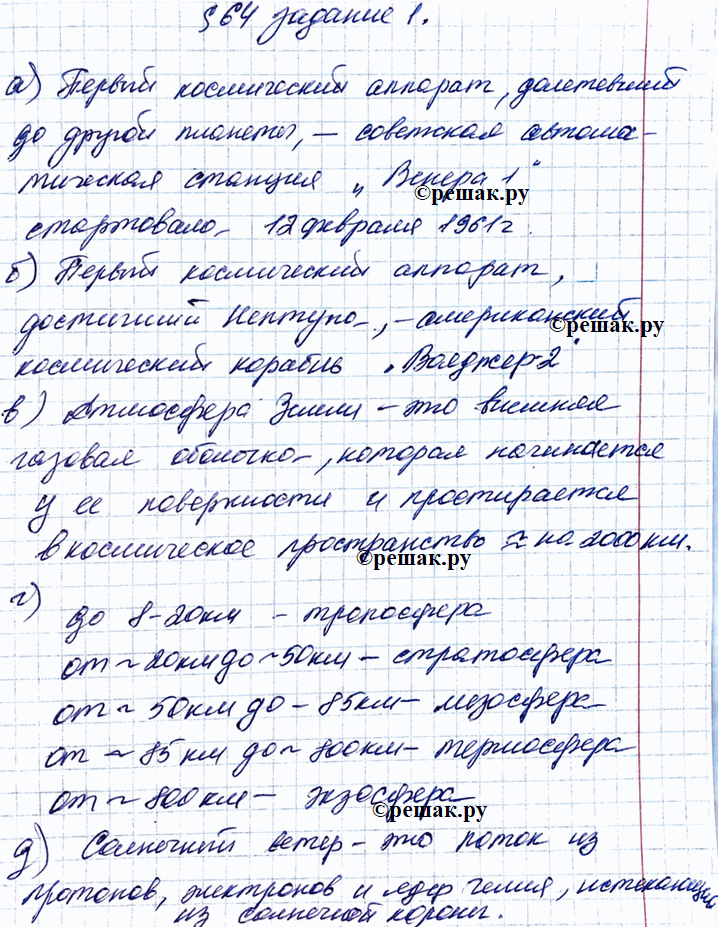 § 64 задание 1.
а) Первый космический аппарат, долетевший
до другой планеты, – советская автома-
тическая станция „Венера 1"
©решак.ру
стартовала 12 февраля 1961г.
б) Первый космический аппарат,
достигший Нептуна, – американский
©решак.ру
космический корабль „Вояджер-2"
в) Атмосфера Земли – это внешняя
газовая оболочка, которая начинается
у ее поверхности и простирается
в космическое пространство ≈ на 2000 км.
©решак.ру
г) до 8-20км – тропосфера
от ~ 20км до ~ 50км – стратосфера
от ~ 50км до ~ 85км – мезосфера
от ~ 85 км до ~ 800км – термосфера
от ~ 800 км – экзосфера
©решак.ру
д) Солнечный ветер – это поток из
протонов, электронов и ядер гелия, истекающий
из солнечной короны.